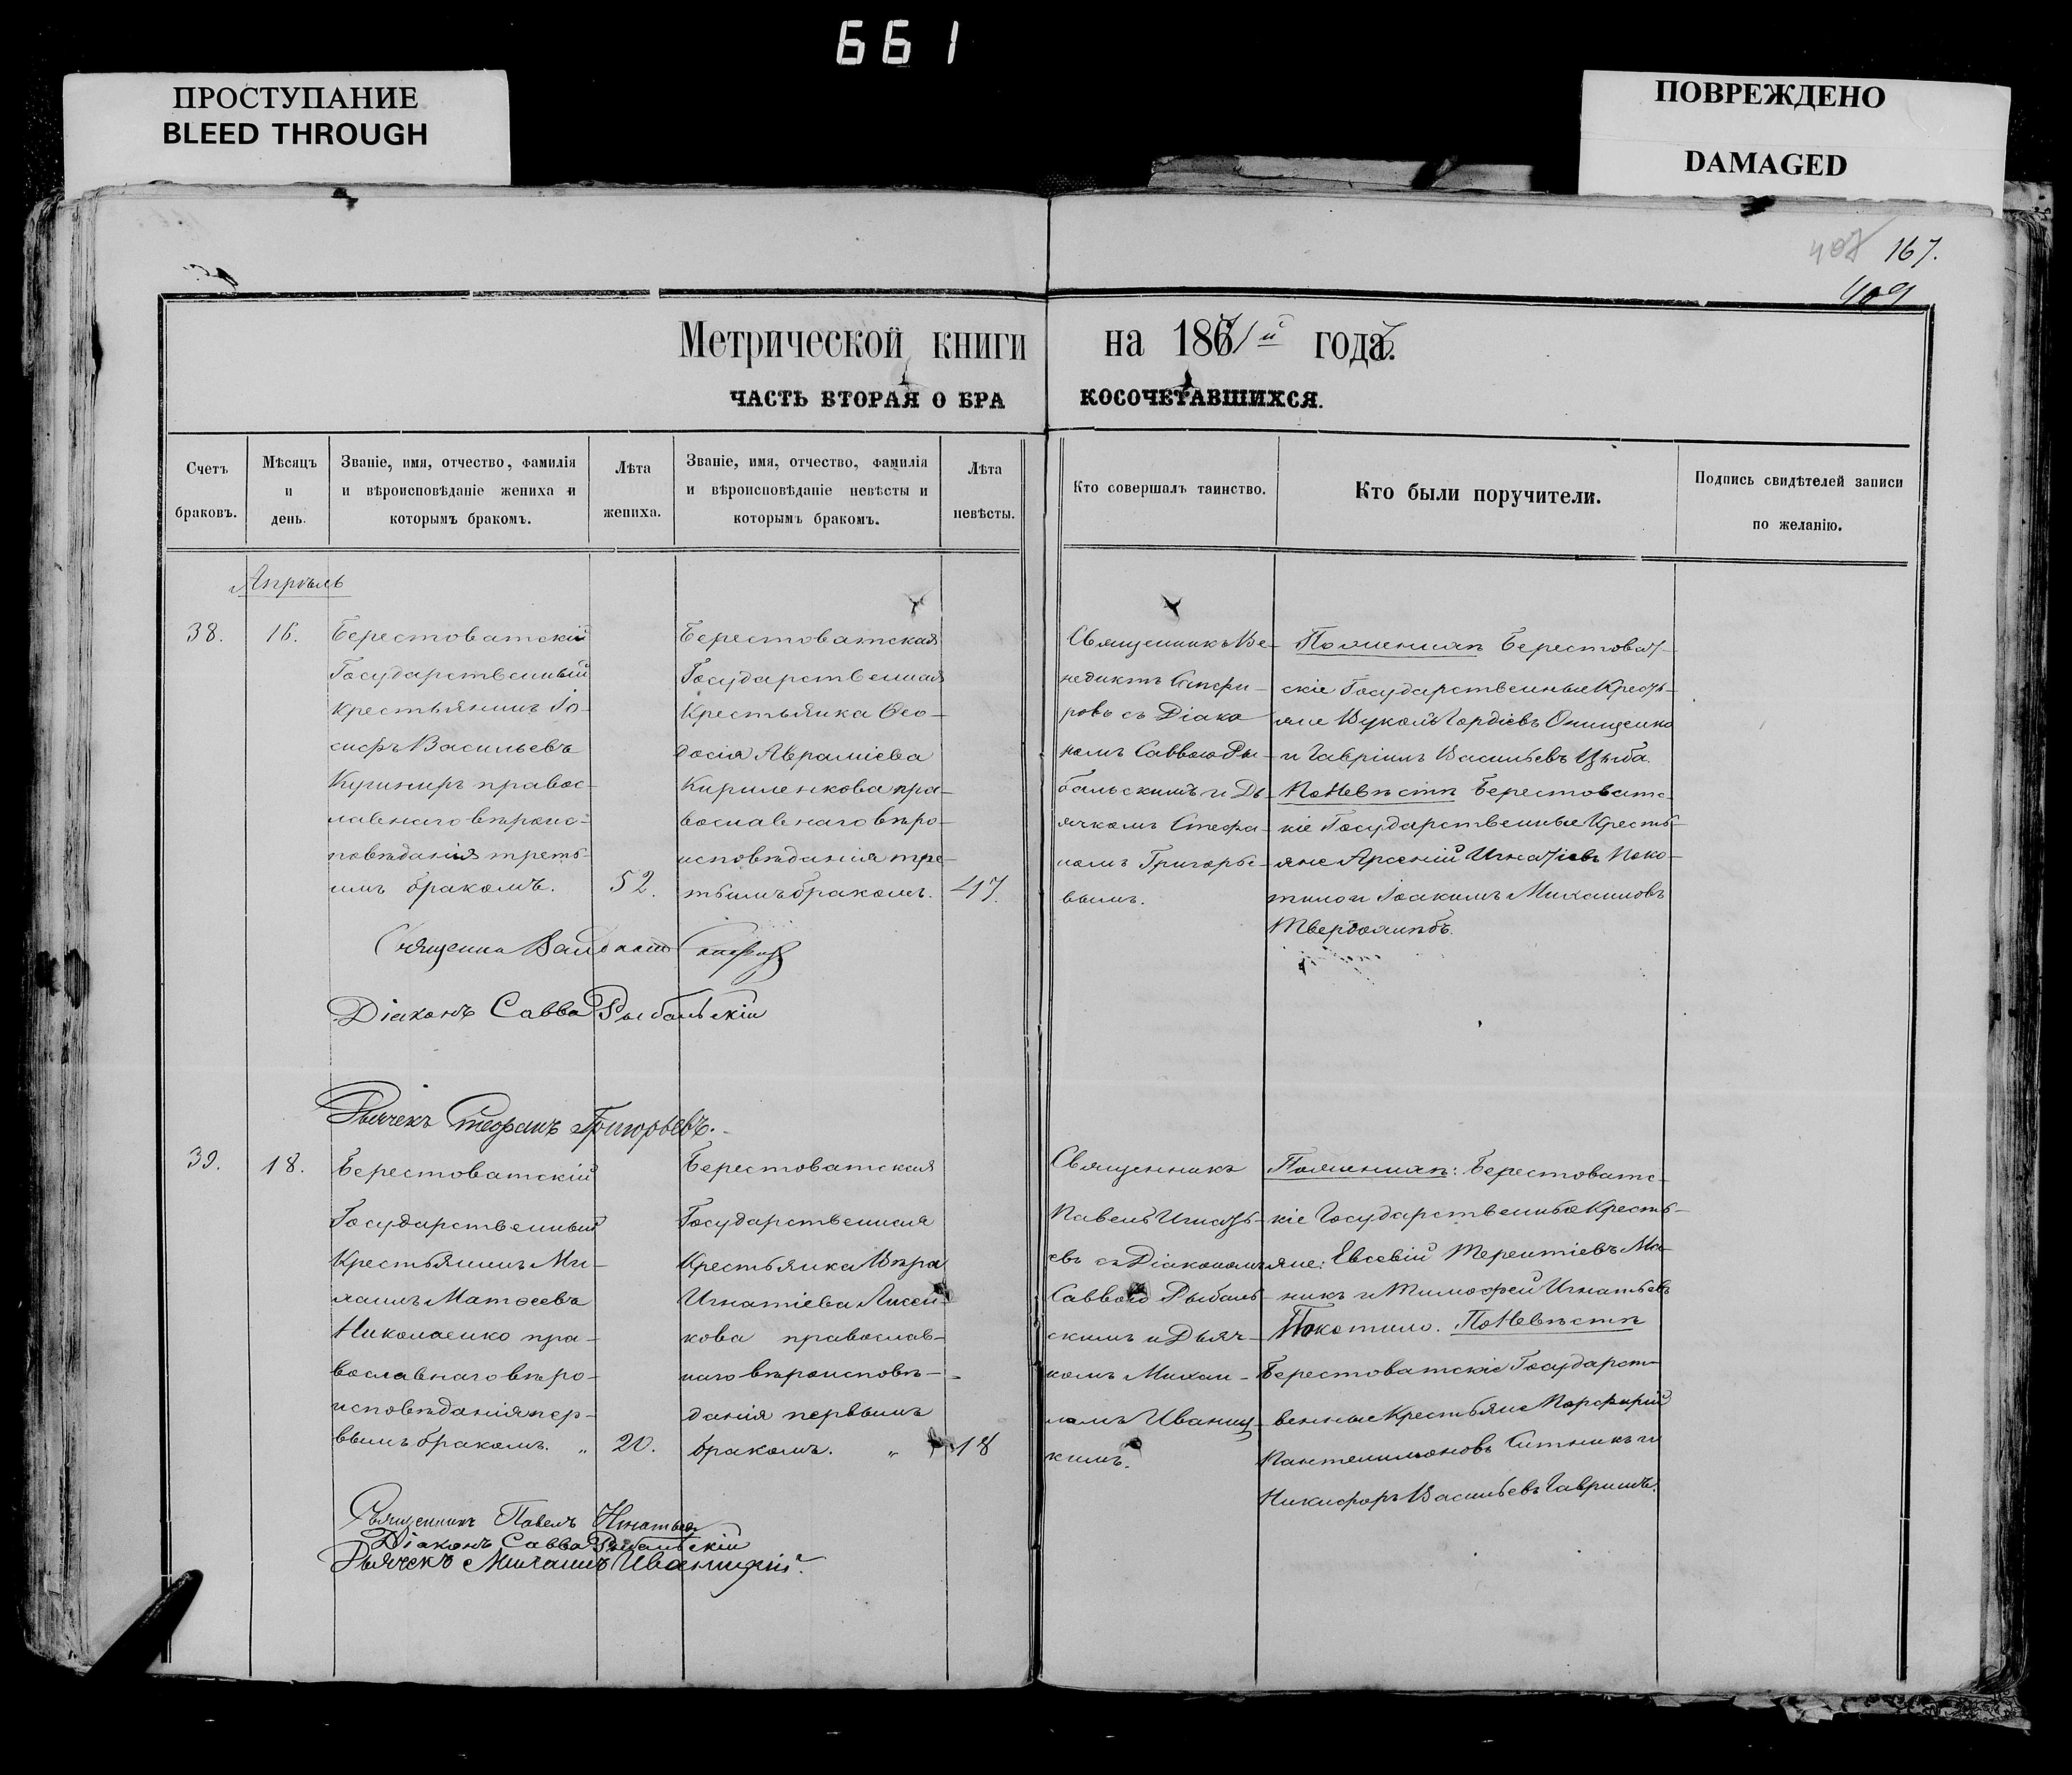 661
ПРОСТУПАНИЕ
BLEED THROUGH
ПОВРЕЖДЕНО
DAMAGED
167.
409
Метрической книги на 1871й годъ.
ЧАСТЬ ВТОРАЯ О БРАКОСОЧЕТАВШИХСЯ.
Счетъ браковъ.
Мѣсяцъ и день.
Званіе, имя, отчество, фамилія и вѣроисповѣданіе жениха и которымъ бракомъ.
Лѣта жениха.
Званіе, имя, отчество, фамилія и вѣроисповѣданіе невѣсты и которымъ бракомъ.
Лѣта невѣсты.
Кто совершалъ таинство.
Кто были поручители.
Подпись свидѣтелей записи по желанію.
Апрѣль
38.
16.
Берестоватскій
Государственный
Крестьянинъ Іо-
сифъ Васильевъ
Кушниръ правос-
лавнаго вѣроис-
повѣданія треть-
имъ бракомъ.
52.
Берестоватская
Государственная
Крестьянка Ѳео-
досія Авраміева
Кириленкова пра-
вославнаго вѣро-
исповѣданія тре-
тьимъ бракомъ.
47.
Священникъ Ве-
недиктъ
ровъ съ Діако
номъ Саввою Ры-
бальскимъ и Дь-
ячкомъ Стефа-
номъ Григорье-
вымъ.
По женихѣ Берестоват-
скіе Государственные Кресть-
яне Вуколъ Гордіевъ Онищенко
и Гавріилъ Васильевъ Цыба.
По Невѣстѣ Берестоватс-
кіе Государственные Кресть-
яне Арсеній Игнатіевъ Поко-
тило и Іоакимъ Михаиловъ
Твердохлѣбъ.
Діаконъ Савва Рыбальскій
Дьячекъ Стефанъ Григорьевъ.
39.
18.
Берестоватскій
Государственный
Крестьянинъ Ми-
хаилъ Матѳеевъ
Николаенко пра-
вославнаго вѣро-
исповѣданія пер-
вымъ бракомъ. „
20.
Берестоватская
Государственная
Крестьянка Вѣра
Игнатіева Лисен-
кова православ-
наго вѣроисповѣ-
данія первымъ
бракомъ. „
18
Священникъ
Павелъ Игнать-
евъ съ Діакономъ
Саввою Рыбаль-
скимъ и Дьяч-
комъ Михаи-
ломъ Иваниц-
кимъ.
По женихѣ: Берестоватс-
кіе Государственные Кресть-
яне: Евсевій Терентіевъ
никъ и Тимофей Игнатьевъ
Покотило. По Невѣстѣ
Берестоватскіе Государст-
венные Крестьяне Порфирій
Пантелимоновъ Ситникъ и
Никифоръ Васильевъ Гавришъ.
Священникъ Павелъ Игнатьевъ
Діаконъ Савва Рыбальскій
Дьячекъ Михаилъ Иваницкій.